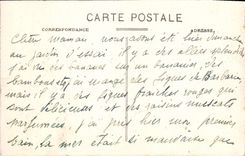 CARTE POSTALE
CORRESPONDANCE
ADRESSE
Chère maman nous avons été hier dimanche
au jardin d'essai il y a des allées splendides
j'ai vu des bananes sur un bananier, des
bambous et j'ai mangé des figues de Barbarie
mais il y a des figues fraîches rouges qui
sont délicieuses et des raisins muscats
parfumés. J'ai pris hier mon premier
bain, la mer était si mauvaise que